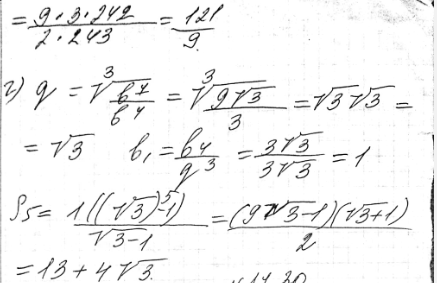 = 9·3·242 / 2·243 = 121 / 9.
г) q = ∛(b7 / b4) = ∛(9√3 / 3) = √3√3 =
= √3 b₁ = b4 / q³ = 3√3 / 3√3 = 1
S5 = 1((√3)⁵-1) / √3-1 = (9√3-1)(√3+1) / 2
= 13 + 4√3.